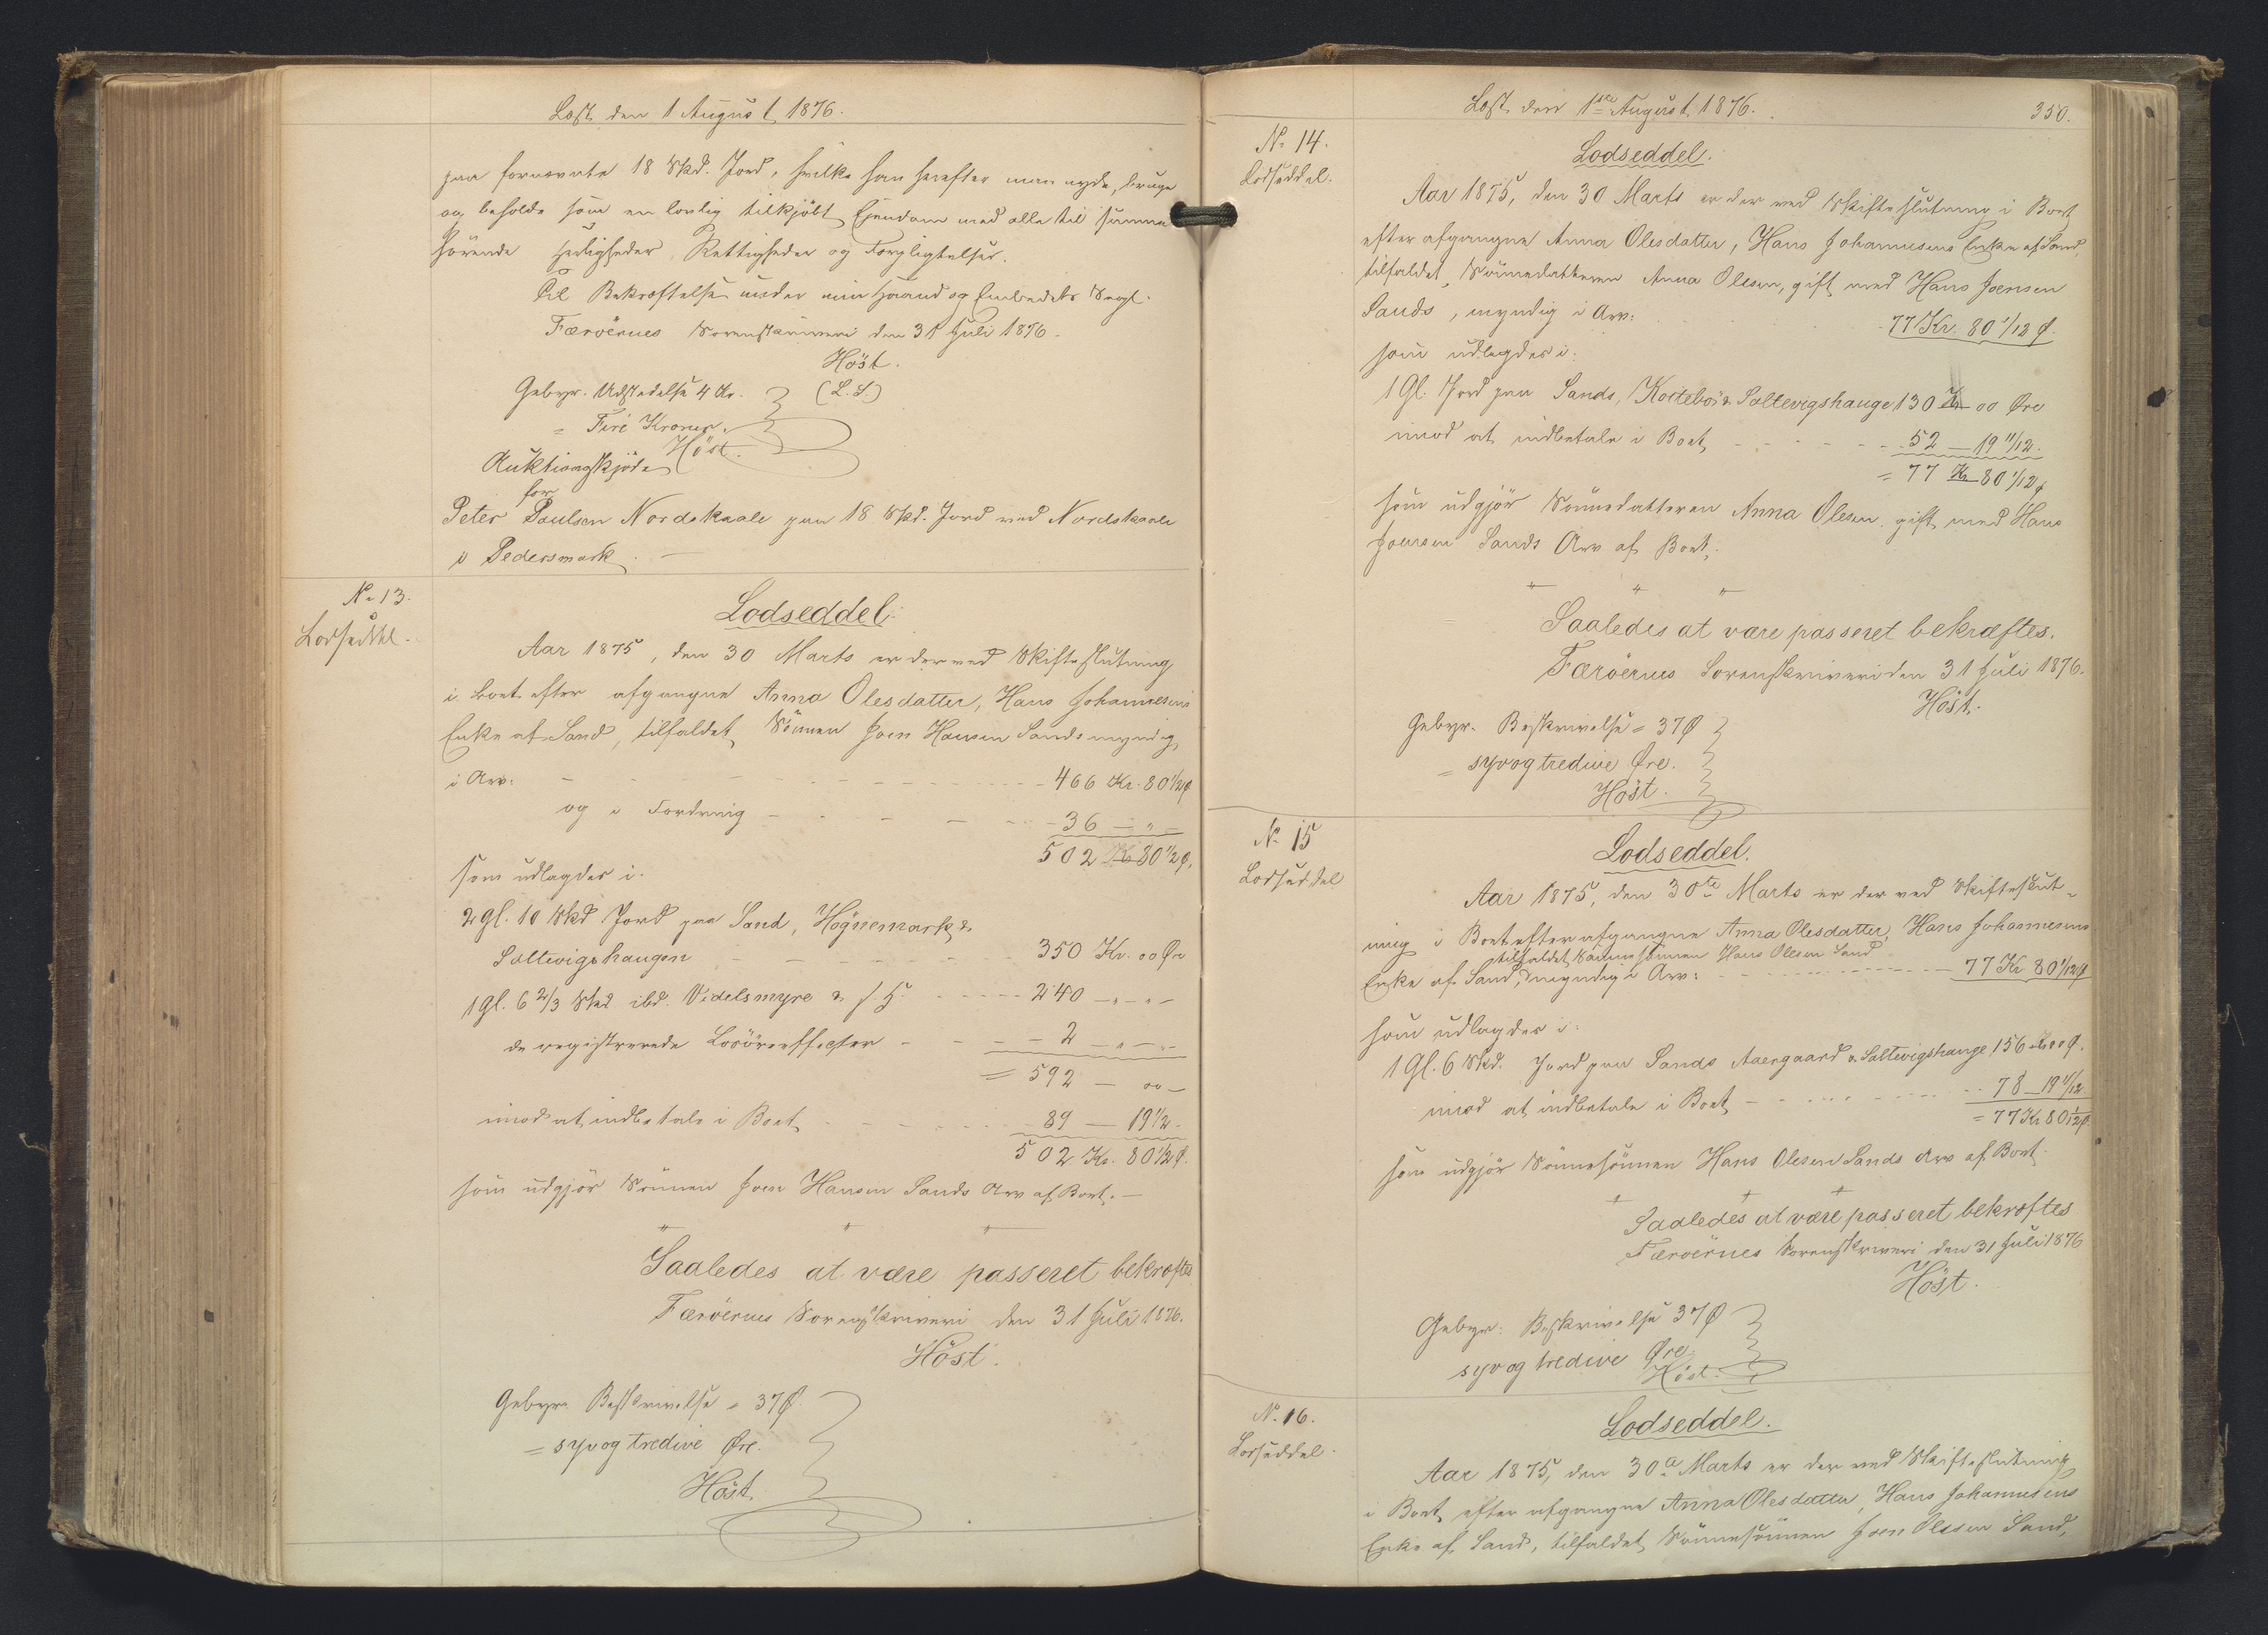 Læst den 1 August 1876.
paa fornævnte 18 Skd. Jord, hvilke han herefter maa nyde, bruge
og beholde som en lovlig tilkjöbt Ejendom med alle til samme
hörende Herligheder, Rettigheder og Forpligtelser.
Til Bekræftelse under min Haand og Embedets Segl.
Færöernes Sorenskriveri den 31 Juli 1876.
Höst.
(L. S.)
Gebyr. Udstedelse 4 Kr.
= Fire Kroner.
Höst.
Auktionsskjöde
for
Peter Poulsen Nordskaale paa 18 Skd. Jord ved Nordskaale
i Pedersmark. —
No 13.
Lodseddel.
Lodseddel.
Aar 1875, den 30 Marts er der ved Skifteslutning
i Boet efter afgangne Anna Olesdatter, Hans Johannesens
Enke af Sand, tilfaldet Sönnen Joen Hansen Sands myndig
i Arv: - - - 466 Kr. 80 1/2 Ø
og i Fordring - - - 36 — " —
502 Kr 80 1/2 Ø.
som udlagdes i.
2 Gl. 10 Skd Jord paa Sand, Högnemark &
Saltevigshaugen - - - 350 Kr. 00 Øre
1 Gl. 6 2/3 Skd ibd. Videlsmyre & s. H. - - - 240 — " —
de registrerede Lösöreeffecter - - - 2 — " —
= 592 — 00 —
imod at indbetale i Boet - - - 89 — 19 1/2.
502 Kr. 80 1/2 Ø.
som udgjör Sönnen Joen Hansen Sands Arv af Boet. —
Saaledes at være passeret bekræftes
Færöernes Sorenskriveri den 31 Juli 1876.
Höst.
Gebyr. Beskrivelse = 37 Ø.
= syv og tredive Øre.
Höst.
Læst den 1ste August 1876.
350.
No 14.
Lodseddel.
Lodseddel.
Aar 1875, den 30 Marts er der ved Skifteslutning i Boet
efter afgangne Anna Olesdatter, Hans Johannesens Enke af Sand,
tilfaldet Sönnedatteren Anna Olesen, gift med Hans Joensen
Sands, myndig i Arv: - - - 77 Kr. 80 1/12 Ø.
som udlagdes i:
1 Gl. Jord paa Sands, Koitebö & Saltevigshauge 130 Kr 00 Øre
imod at indbetale i Boet - - - 52 — 19 11/12.
= 77 Kr 80 1/12 Ø
som udgjör Sönnedatteren Anna Olesen gift med Hans
Joensen Sands Arv af Boet.
Saaledes at være passeret bekræftes.
Færöernes Sorenskriveri den 31 Juli 1876.
Höst.
Gebyr. Beskrivelse = 37 Ø
= syv og tredive Øre.
Höst.
No 15
Lodseddel
Lodseddel.
Aar 1875, den 30te Marts er der ved Skifteslut-
ning i Boet efter afgangne Anna Olesdatter, Hans Johannesens
tilfaldet Sönnesönnen Hans Olesen Sand
Enke af Sand, myndig i Arv: - - - 77 Kr 80 1/12 Ø
som udlagdes i:
1 Gl. 6 Skd. Jord paa Sands Aaergaard & Saltevigshauge 156 Kr 00 Ø.
imod at indbetale i Boet - - - 78 — 19 11/12
= 77 Kr 80 1/12 Ø.
som udgjör Sönnesönnen Hans Olesen Sands Arv af Boet.
Saaledes at være passeret bekræftes
Færöernes Sorenskriveri den 31 Juli 1876
Höst.
Gebyr: Beskrivelse 37 Ø
syv og tredive Øre
Höst.
No. 16.
Lodseddel.
Lodseddel.
Aar 1875, den 30te Marts er der ved Skifteslutning
i Boet efter afgangne Anna Olesdatter, Hans Johannesens
Enke af Sands, tilfaldet Sönnesönnen Joen Olesen Sand,